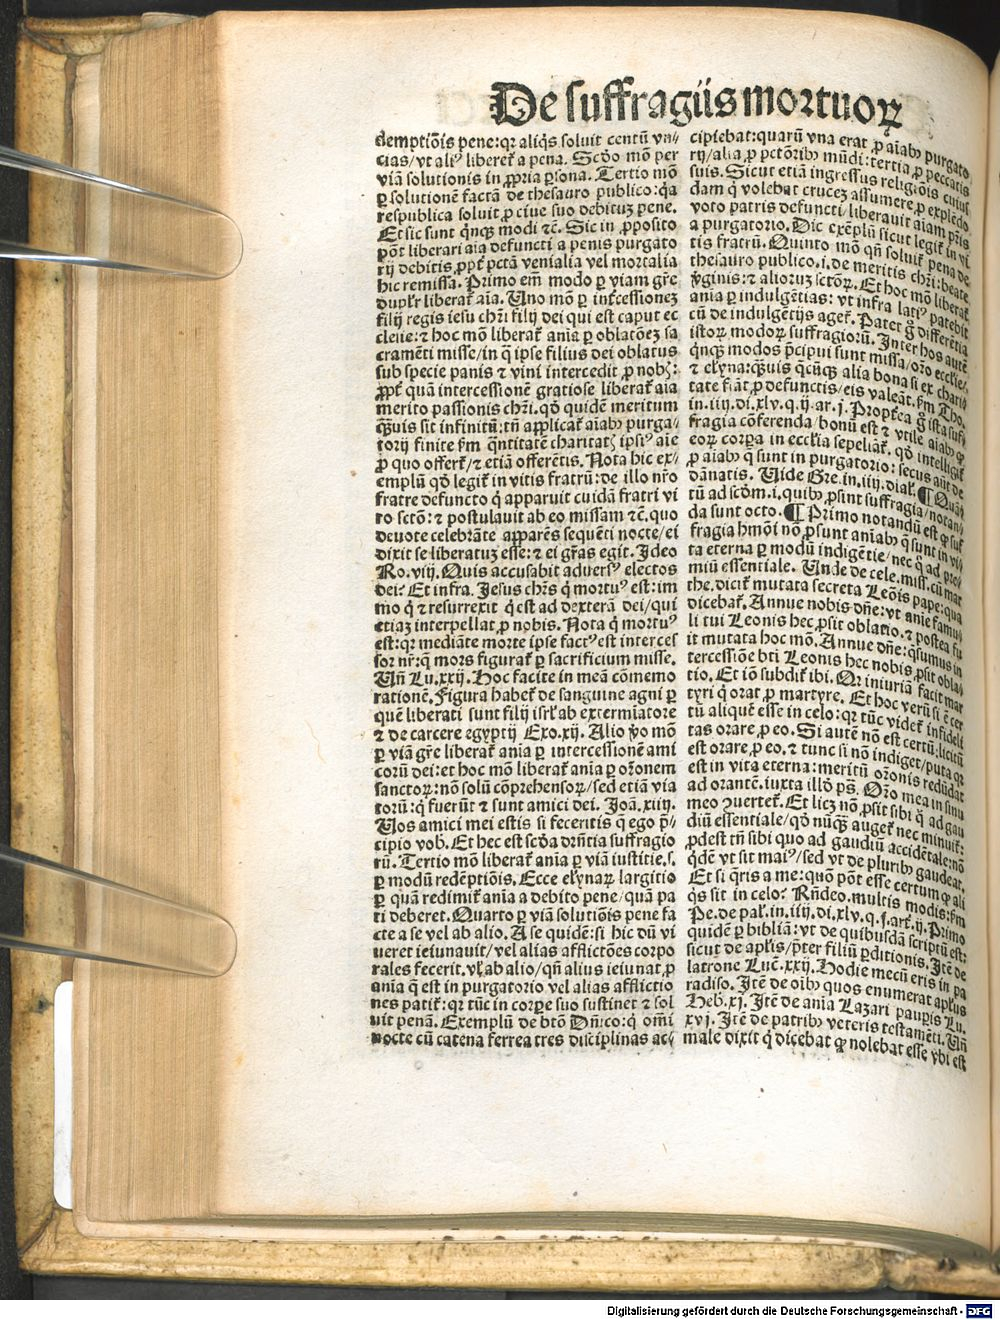 De suffragiis mortuoꝝ
demptiōis pene: qꝛ aliq̇s soluit centū vn⸗
cias/ vt aliꝰ liberet᷑ a pena. Scd̓o mō per
viā solutionis in ꝓpria ꝑsona. Tertio mō
ꝑ solutionē factā de thesauro publico: q̇a
respublica soluit ꝓ ciue suo debituꝫ pene.
Et sic sunt qn̄cꝫ modi ⁊c̄. Sic in ꝓposito
pōt liberari aīa defuncti a penis purgato
rij debitis, ꝓpt̓ pctā venialia vel mortalia
hic remissa. Primo em̄ modo ꝑ viam gr̄e
duplr̓ liberat᷑ aīa. Uno mō ꝑ inf̄cessionez
filij regis iesu chr̄i filij dei qui est caput ec
clesie: ⁊ hoc mō liberat᷑ anīa ꝑ oblatōez sa
cramēti misse/ in q̄ ipse filius dei oblatus
sub specie panis ⁊ vini intercedit ꝓ nobꝫ:
ꝓpt̓ quā intercessionē gratiose liberat᷑ aīa
merito passionis chr̄i. qd̓ quidē meritum
qꝫuis sit infinitū: tn̄ applicat᷑ aīabꝫ purga⸗
torij finite ẜm qn̄titatē charitatꝭ ipsiꝰ aīe
ꝓ quo offert᷑/ ⁊ etiā offerētis. Nota hic ex⸗
emplū qd̓ legit᷑ in vitis fratrū: de illo nr̄o
fratre defuncto q̇ apparuit cuidā fratri vi
ro sctō: ⁊ postulauit ab eo missam ⁊c̄. quo
deuote celebrāte apparēs sequēti nocte/ ei
dixit se liberatuꝫ esse: ⁊ ei gr̄as egit. Ideo
Ro. viij. Quis accusabit aduersꝰ electos
dei? Et infra. Jesus chr̄s q̇ mortuꝰ est: im
mo q̇ ⁊ resurrexit q̇ est ad dexterā dei/ qui
etiaꝫ interpellat ꝓ nobis. Nota q̇ mortuꝰ
est: qꝛ mediāte morte ipse factꝰ est interces
sor nr̄: q̄ mors figurat᷑ ꝑ sacrificium misse.
Un̄ Lu. xxij. Hoc facite in meā cōmemo
rationē. Figura habet᷑ de sanguine agni ꝑ
quē liberati sunt filij isrl̓ ab extermiatore
⁊ de carcere egyptij Exo. xij. Alio v̓o mō
ꝑ viā gr̄e liberat᷑ anīa ꝑ intercessionē ami
corū dei: et hoc mō liberat᷑ anīa ꝑ or̄onem
sanctoꝝ: nō solū cōprehensoꝝ/ sed etiā via
torū: q̇ fuerūt ⁊ sunt amici dei. Joā. xiiij.
Uos amici mei estis si feceritis q̄ ego p̄⸗
cipio vob̄. Et hec est scd̓a dr̄ntia suffragio
rū. Tertio mō liberat᷑ anīa ꝑ viā iustitie. s.
ꝑ modū redēptiōis. Ecce elynaꝝ largitio
ꝑ quā redimit᷑ anīa a debito pene/ quā pa
ti deberet. Quarto ꝑ viā solutiōis pene fa
cte a se vel ab alio. A se quidē: si hic dū vi
ueret ieiunauit/ vel alias afflictōes corpo
rales fecerit. vl̓ ab alio/ qn̄ alius ieiunat ꝓ
anīa q̄ est in purgatorio vel alias afflictio
nes patit᷑: qꝛ tūc in corꝑe suo sustinet ⁊ sol
uit penā. Exemplū de btō Dn̄ico: q̇ om̄i
nocte cū catena ferrea tres disciplinas ac⸗
cipiebat: quarū vna erat ꝓ aīabꝫ purgato
rij/ alia ꝓ pctōribꝫ mūdi: tertia ꝓ peccatis
suis. Sicut etiā ingressus religiōis cuius
dam q̇ volebat crucez assumere ꝓ explēdo
voto patris defuncti/ liberauit aīam pr̄is
a purgatorio. Dic exēplū sicut legit᷑ in vi
tis fratrū. Quinto mō qn̄ soluit᷑ pena de
thesauro publico. i. de meritis chr̄i: beate
v̓ginis: ⁊ alioruꝫ sctōꝝ. Et hoc mō liberat᷑
anīa ꝑ indulgētias: vt infra latiꝰ patebit
cū de indulgētijs aget᷑. Patet g̊ differētia
istoꝝ modoꝝ suffragiorū. Inter hos autē
qn̄qꝫ modos p̄cipui sunt missa/ or̄o eccl̓ie/
⁊ elyna: qꝫuis q̄cūqꝫ alia bona si ex chari⸗
tate fiāt ꝓ defunctis/ eis valeāt. ẜm Tho.
in. iiij. di. xlv. q. ij. ar. j. Propt̓ea g̊ ista suf⸗
fragia cōferenda/ bonū est ⁊ vtile aīabꝫ ꝙ
eoꝝ corꝑa in eccl̓ia sepeliāt᷑. qd̓ intelligit᷑
ꝓ aīabꝫ q̄ sunt in purgatorio: secus aūt de
dānatis. Uide Gre. in. iiij. dial̓. ¶ Quā⸗
tū ad scd̓m. i. quibꝫ ꝓsint suffragia/ notan⸗
da sunt octo. ¶ Primo notandū est ꝙ suf⸗
fragia hmōi nō ꝓsunt anīabꝫ q̄ sunt in vi⸗
ta eterna ꝑ modū indigētie/ nec q̇ ad pre⸗
miū essentiale. Unde de cele. miss. cū mar
the. dicit᷑ mutata secreta Leōis pape: qua
dicebat᷑. Annue nobis dn̄e: vt anīe famu⸗
li tui Leonis hec ꝓsit oblatio. ⁊ postea fu
it mutata hoc mō. Annue dn̄e: q̄sumus in
tercessiōe bt̄i Leonis hec nobis ꝓsit obla⸗
tio. Et iō subdit᷑ ibi. Qꝛ iniuriā facit mar
tyri q̇ orat ꝓ martyre. Et hoc verū si ē cer
tū aliquē esse in celo: qꝛ tūc videt᷑ infideli
tas orare ꝓ eo. Si autē nō est certū, licitū
est orare ꝓ eo. ⁊ tunc si nō indiget/ puta qꝛ
est in vita eterna: meritū or̄onis redūdat
ad orantē. iuxta illd̓ ps̄. Or̄o mea in sinu
meo ꝯuertet᷑. Et licꝫ nō ꝓsit sibi q̇ ad gau
diū essentiale/ qd̓ nūqꝫ auget᷑ nec minuit᷑:
ꝓdest tn̄ sibi quo ad gaudiū accidētale: nō
q̇dē vt sit maiꝰ/ sed vt de pluribꝫ gaudeat.
Et si q̇ris a me: quō pōt esse certum ꝙ ali
q̇s sit in celo? Rn̄deo. multis modis: ẜm
Pe. de pal̓. in. iiij. di. xlv. q. j. art. ij. Primo
quidē ꝑ bibliā: vt de quibusdā scriptū est:
sicut de apl̓is/ p̄ter filiū ꝑditionis. Itē de
latrone Luc̄. xxij. Hodie mecū eris in pa
radiso. Itē de oībꝫ quos enumerat apl̓us
Heb. xj. Itē de anīa Lazari pauꝑis Lu.
xvj. Itē de patribꝫ veteris testamēti. Un̄
male dixit q̇ dicebat ꝙ nolebat esse vbi est